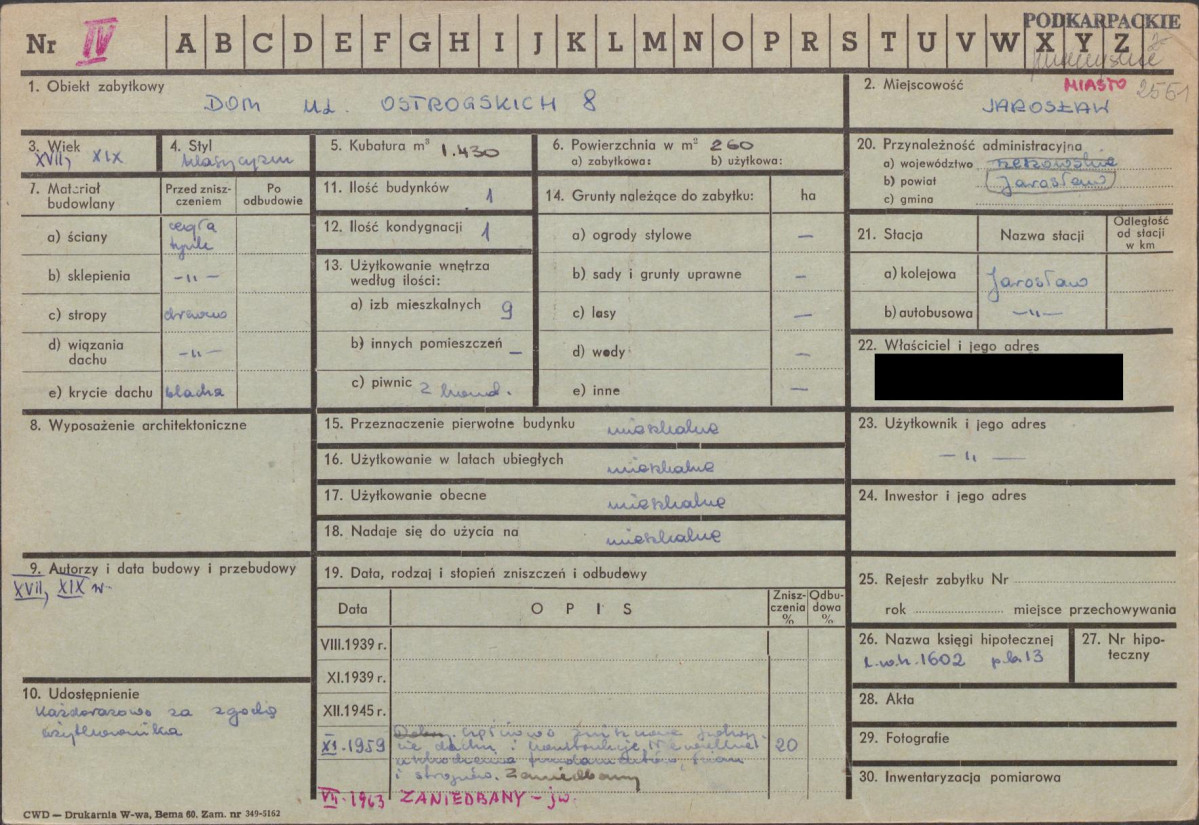 PODKARPACKIE
Nr IV A B C D E F G H I J K L M N O P R S T U V W X Y Z
2561
1. Obiekt zabytkowy
DOM UL. OSTROGSKICH 8
2. Miejscowość MIASTO
JAROSŁAW
3. Wiek
XVII, XIX
4. Styl
klasycyzm
5. Kubatura m³ 1.430
6. Powierzchnia w m² 260
a) zabytkowa: b) użytkowa:
20. Przynależność administracyjna
a) województwo rzeszowskie
b) powiat Jarosław
c) gmina
7. Materiał budowlany
Przed zniszczeniem
Po odbudowie
a) ściany cegła tynk
b) sklepienia —"—
c) stropy drewno
d) wiązania dachu —"—
e) krycie dachu blacha
11. Ilość budynków 1
12. Ilość kondygnacji 1
13. Użytkowanie wnętrza według ilości:
a) izb mieszkalnych 9
b) innych pomieszczeń —
c) piwnic 2 kond.
14. Grunty należące do zabytku: ha
a) ogrody stylowe —
b) sady i grunty uprawne —
c) lasy —
d) wody —
e) inne —
21. Stacja Nazwa stacji Odległość od stacji w km
a) kolejowa Jarosław
b) autobusowa —"—
22. Właściciel i jego adres
8. Wyposażenie architektoniczne
15. Przeznaczenie pierwotne budynku mieszkalne
16. Użytkowanie w latach ubiegłych mieszkalne
17. Użytkowanie obecne mieszkalne
18. Nadaje się do użycia na mieszkalne
23. Użytkownik i jego adres
—"—
24. Inwestor i jego adres
9. Autorzy i data budowy i przebudowy
XVII, XIX w.
19. Data, rodzaj i stopień zniszczeń i odbudowy
Data OPIS Zniszczenia % Odbudowa %
VIII.1939 r.
XI.1939 r.
XII.1945 r.
XI.1959 częściowo zniszczone pokrycie dachu i konstrukcje. Niewielkie uszkodzenia fundamentów, ścian i stropów. Zaniedbany 20
VII.1963 ZANIEDBANY - jw.
25. Rejestr zabytku Nr
rok miejsce przechowywania
26. Nazwa księgi hipotecznej
L.w.h. 1602 p.b. 13
27. Nr hipoteczny
10. Udostępnienie
Każdorazowo za zgodą
użytkownika
28. Akta
29. Fotografie
30. Inwentaryzacja pomiarowa
CWD — Drukarnia W-wa, Bema 60. Zam. nr 349-5162